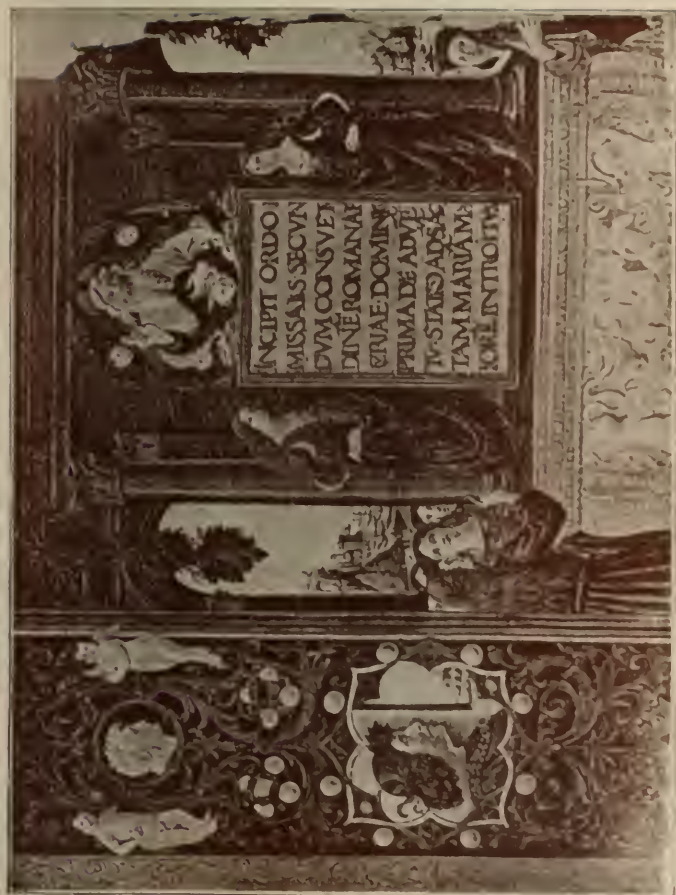 INCIPIT ORDO
MISSALIS SECVN
DVM CONSVET
DINĒ ROMANAE
CVRIAE·DOMINIC
PRIMA DE ADVĒ
TV·STATIO AD SĀC
TAM MARIĀ MA
IORĒ INTROITV